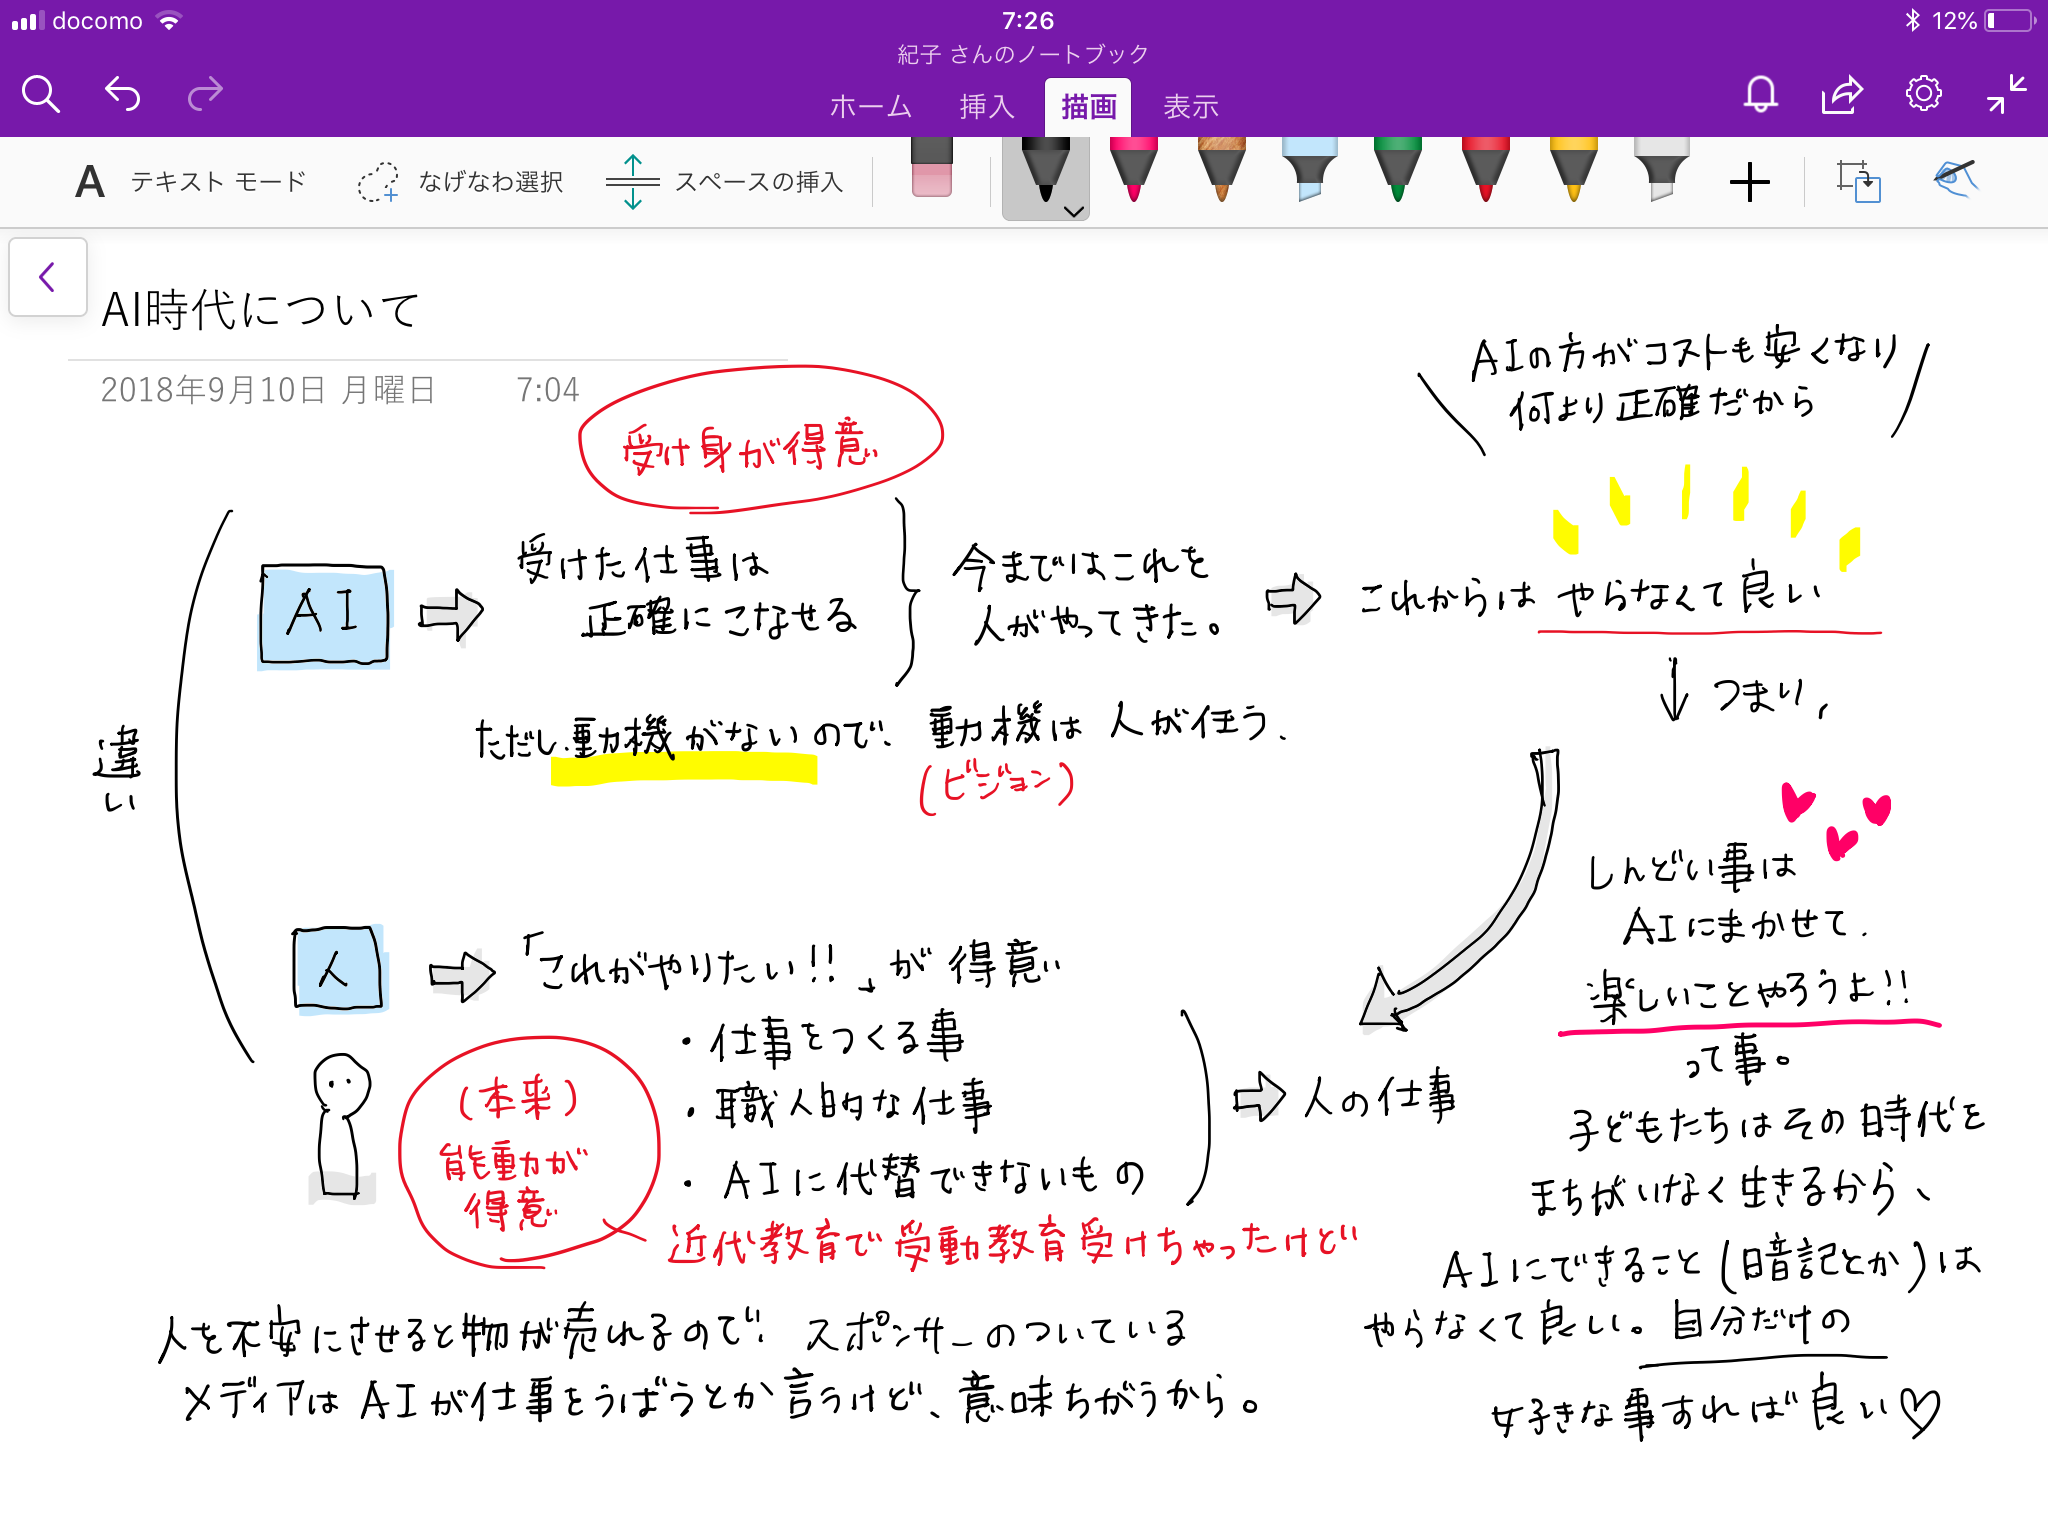 docomo
7:26
12%
紀子 さんのノートブック
ホーム 挿入 描画 表示
A テキスト モード なげなわ選択 スペースの挿入
AI時代について
2018年9月10日 月曜日 7:04
受け身が得意
AIの方がコストも安くなり
何より正確だから
違い
AI
受けた仕事は
正確にこなせる
今まではこれを
人がやってきた。
これからは やらなくて良い
つまり、
ただし、動機がないので、動機は人が任う、
(ビジョン)
しんどい事は
AIにまかせて、
楽しいことやろうよ!!
って事。
人
「これがやりたい!!」が得意
・仕事をつくる事
・職人的な仕事
・AIに代替できないもの
人の仕事
(本来)
能動が
得意
近代教育で受動教育受けちゃったけど
子どもたちはその時代を
まちがいなく生きるから、
AIにできること(暗記とか)は
やらなくて良い。自分だけの
好きな事すれば良い♡
人を不安にさせると物が売れるので、スポンサーのついている
メディアはAIが仕事をうばうとか言うけど、意味ちがうから。